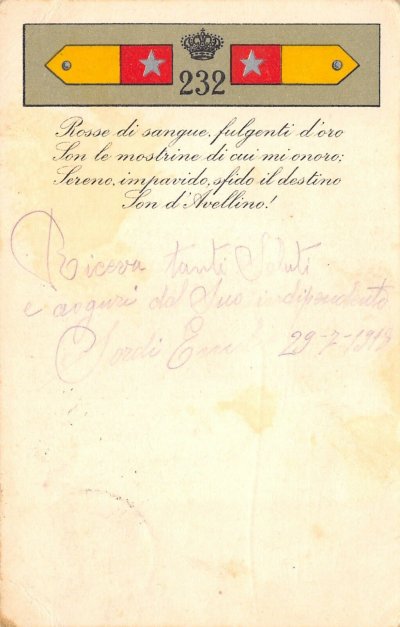 232
Rosse di sangue, fulgenti d'oro
Son le mostrine di cui mi onoro;
Sereno, impavido, sfido il destino
Son d'Avellino!
Riceva tanti Saluti
e auguri dal Suo indipendente
Sordi 29-7-191